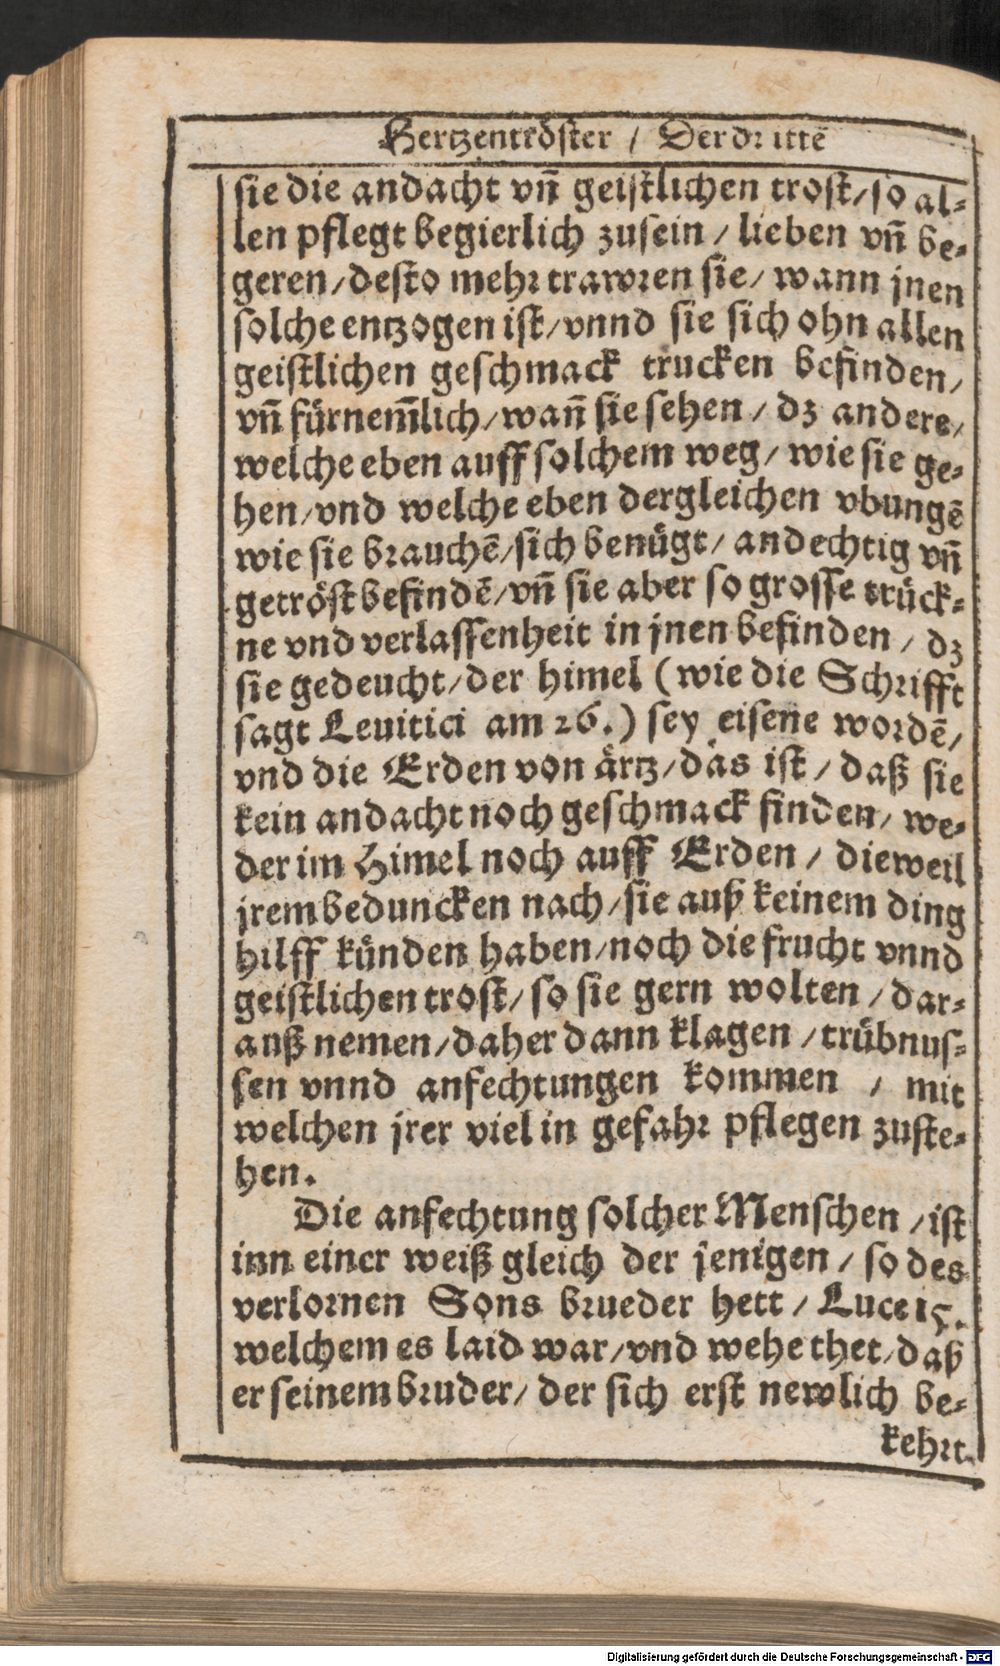 Hertzentröster / Der drittē
sie die andacht vñ geistlichen trost/ so al⸗
len pflegt begierlich zusein / lieben vñ be⸗
geren/ desto mehr trawren sie/ wann jnen
solche entzogen ist/ vnnd sie sich ohn allen
geistlichen geschmack trucken befinden/
vñ fürnem̃lich/ wañ sie sehen / dz andere/
welche eben auff solchem weg/ wie sie ge⸗
hen/ vnd welche eben dergleichen vbungē
wie sie brauchē/ sich benügt/ andechtig vñ
getröst befindē/ vñ sie aber so grosse trück⸗
ne vnd verlassenheit in jnen befinden / dz
sie gedeucht/ der himel (wie die Schrifft
sagt Leuitici am 26.) sey eisene wordē/
vnd die Erden von ärtz/ das ist / daß sie
kein andacht noch geschmack finden/ we⸗
der im Himel noch auff Erden / dieweil
jrem beduncken nach/ sie auß keinem ding
hilff künden haben/ noch die frucht vnnd
geistlichen trost/ so sie gern wolten / dar⸗
auß nemen/ daher dann klagen / trübnus⸗
sen vnnd anfechtungen kommen / mit
welchen jrer viel in gefahr pflegen zuste⸗
hen.
Die anfechtung solcher Menschen / ist
inn einer weiß gleich der jenigen / so des
verlornen Sons brueder hett / Luce 15.
welchem es laid war/ vnd wehe thet/ daß
er seinem bruder/ der sich erst newlich be⸗
kehrt
Digitalisierung gefördert durch die Deutsche Forschungsgemeinschaft - DFG